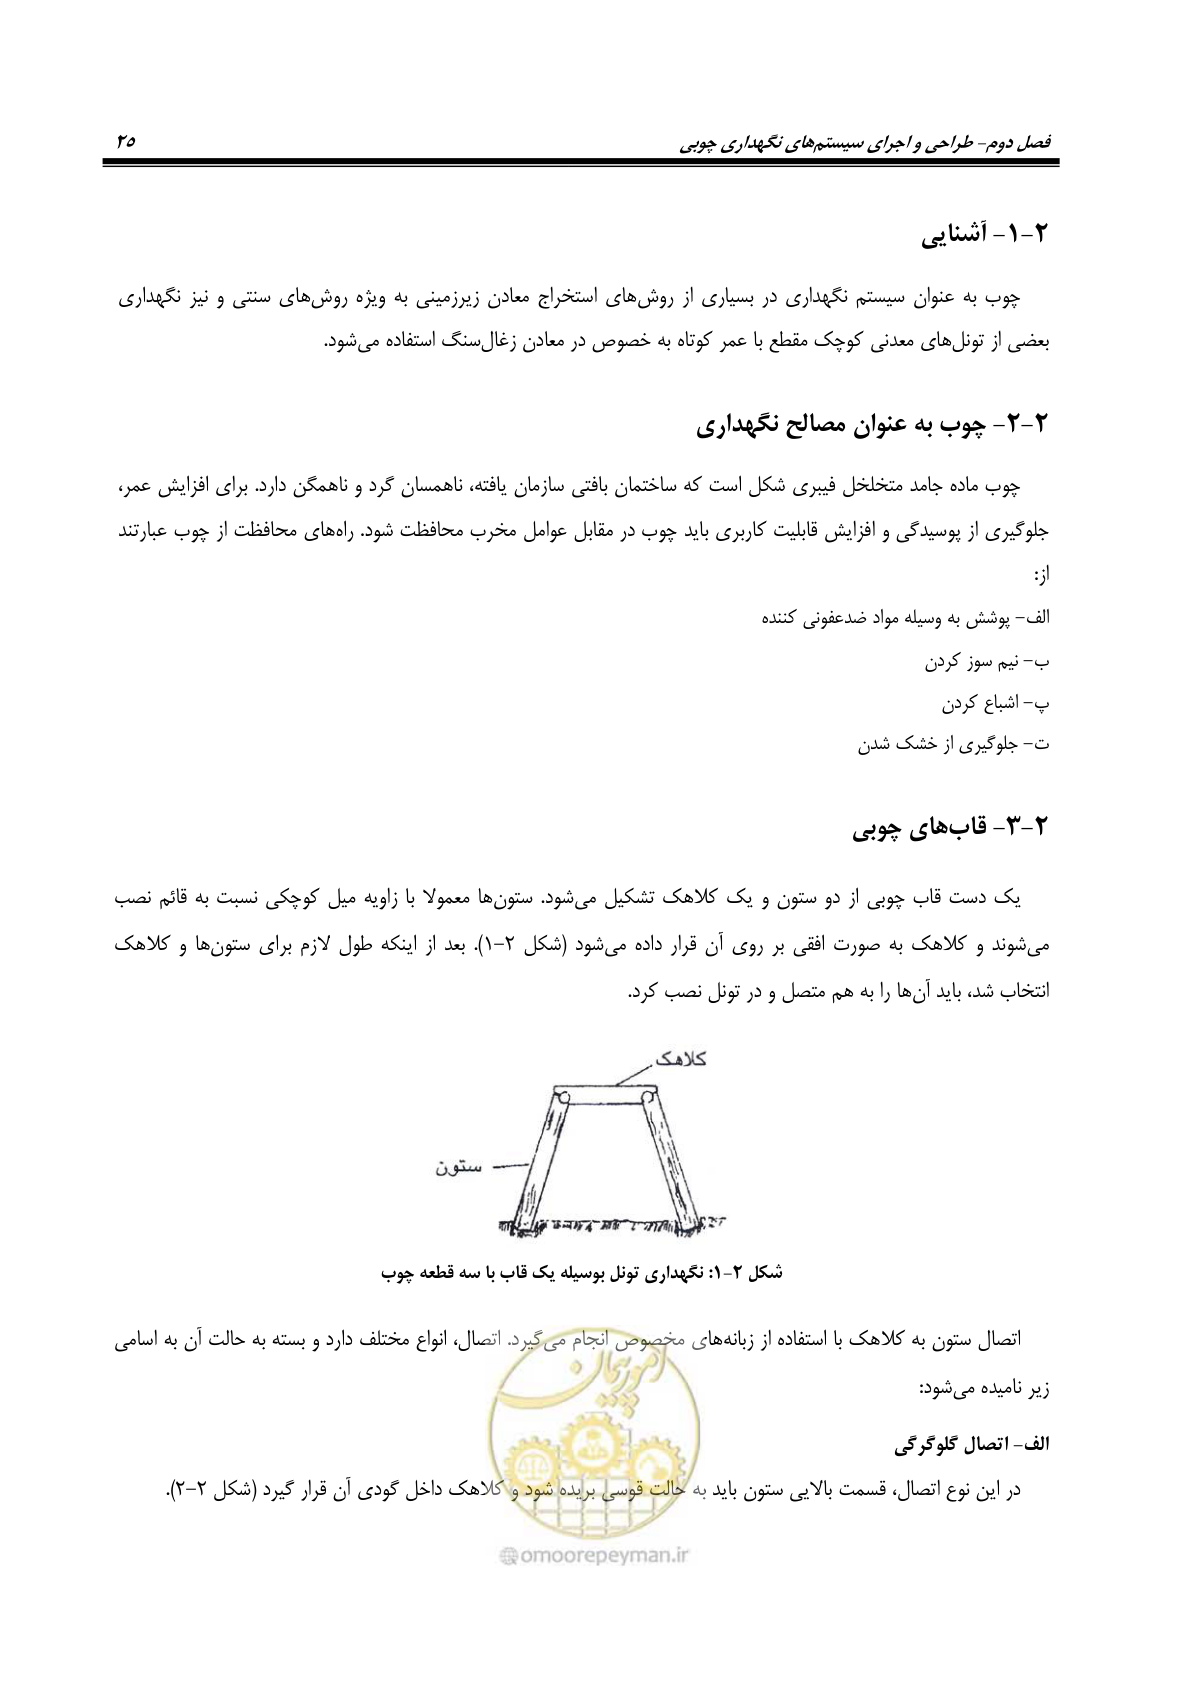 فصل دوم- طراحی و اجرای سیستم‌های نگهداری چوبی ۲۵
۲-۱- آشنایی
چوب به عنوان سیستم نگهداری در بسیاری از روش‌های استخراج معادن زیرزمینی به ویژه روش‌های سنتی و نیز نگهداری
بعضی از تونل‌های معدنی کوچک مقطع با عمر کوتاه به خصوص در معادن زغال‌سنگ استفاده می‌شود.
۲-۲- چوب به عنوان مصالح نگهداری
چوب ماده جامد متخلخل فیبری شکل است که ساختمان بافتی سازمان یافته، ناهمسان گرد و ناهمگن دارد. برای افزایش عمر،
جلوگیری از پوسیدگی و افزایش قابلیت کاربری باید چوب در مقابل عوامل مخرب محافظت شود. راه‌های محافظت از چوب عبارتند
از:
الف- پوشش به وسیله مواد ضدعفونی کننده
ب- نیم سوز کردن
پ- اشباع کردن
ت- جلوگیری از خشک شدن
۲-۳- قاب‌های چوبی
یک دست قاب چوبی از دو ستون و یک کلاهک تشکیل می‌شود. ستون‌ها معمولا با زاویه میل کوچکی نسبت به قائم نصب
می‌شوند و کلاهک به صورت افقی بر روی آن قرار داده می‌شود (شکل ۲-۱). بعد از اینکه طول لازم برای ستون‌ها و کلاهک
انتخاب شد، باید آن‌ها را به هم متصل و در تونل نصب کرد.
کلاهک
ستون
شکل ۲-۱: نگهداری تونل بوسیله یک قاب با سه قطعه چوب
اتصال ستون به کلاهک با استفاده از زبانه‌های مخصوص انجام می‌گیرد. اتصال، انواع مختلف دارد و بسته به حالت آن به اسامی
زیر نامیده می‌شود:
امور پیمان
الف- اتصال گلوگرگی
در این نوع اتصال، قسمت بالایی ستون باید به حالت قوسی بریده شود و کلاهک داخل گودی آن قرار گیرد (شکل ۲-۲).
omoorepeyman.ir